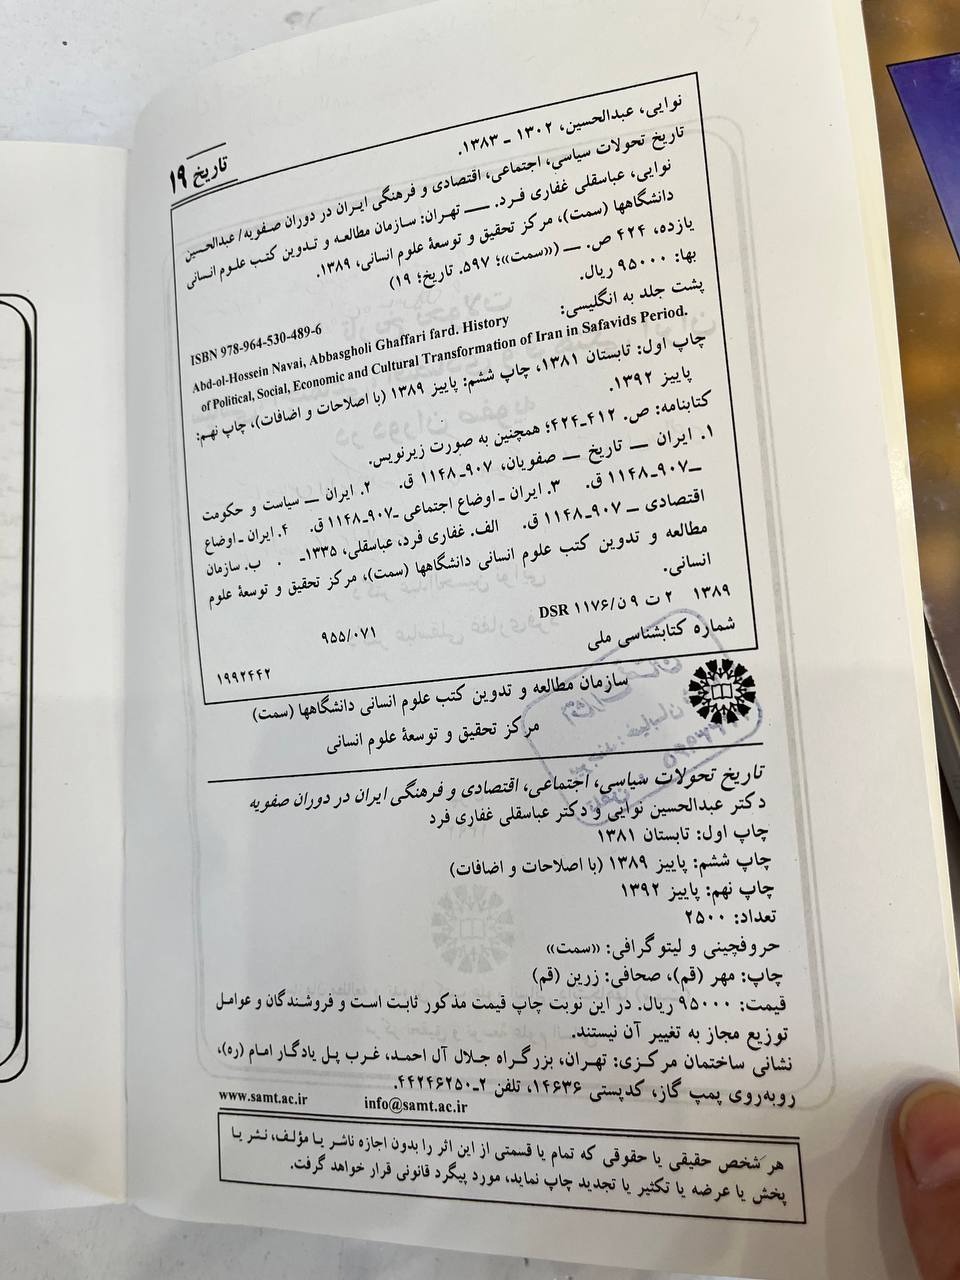 تاریخ ۱۹
نوایی، عبدالحسین، ۱۳۰۲ ـ ۱۳۸۳.
تاریخ تحولات سیاسی، اجتماعی، اقتصادی و فرهنگی ایران در دوران صفویه/ عبدالحسین
نوایی، عباسقلی غفاری فرد. ــ تهران: سازمان مطالعه و تدوین کتب علوم انسانی
دانشگاهها (سمت)، مرکز تحقیق و توسعۀ علوم انسانی، ۱۳۸۹.
یازده، ۴۲۴ ص. ــ («سمت»؛ ۵۹۷. تاریخ؛ ۱۹)
بها: ۹۵۰۰۰ ریال.
ISBN 978-964-530-489-6
پشت جلد به انگلیسی:
Abd-ol-Hossein Navai, Abbasgholi Ghaffari fard. History
of Political, Social, Economic and Cultural Transformation of Iran in Safavids Period.
چاپ اول: تابستان ۱۳۸۱، چاپ ششم: پاییز ۱۳۸۹ (با اصلاحات و اضافات)، چاپ نهم:
پاییز ۱۳۹۲.
کتابنامه: ص. ۴۱۲ـ۴۲۴؛ همچنین به صورت زیرنویس.
۱. ایران ــ تاریخ ــ صفویان، ۹۰۷ـ۱۱۴۸ ق. ۲. ایران ــ سیاست و حکومت
ــ۹۰۷ـ۱۱۴۸ ق. ۳. ایران ـ اوضاع اجتماعی ـ۹۰۷ـ۱۱۴۸ ق. ۴. ایران ـ اوضاع
اقتصادی ــ ۹۰۷ـ۱۱۴۸ ق. الف. غفاری فرد، عباسقلی، ۱۳۳۵ـ . ب. سازمان
مطالعه و تدوین کتب علوم انسانی دانشگاهها (سمت)، مرکز تحقیق و توسعۀ علوم
انسانی.
۱۳۸۹ ۲ ت ۹ ن/۱۱۷۶ DSR
۹۵۵/۰۷۱
شماره کتابشناسی ملی
۱۹۹۲۴۴۲
سازمان مطالعه و تدوین کتب علوم انسانی دانشگاهها (سمت)
مرکز تحقیق و توسعۀ علوم انسانی
تاریخ تحولات سیاسی، اجتماعی، اقتصادی و فرهنگی ایران در دوران صفویه
دکتر عبدالحسین نوایی و دکتر عباسقلی غفاری فرد
چاپ اول: تابستان ۱۳۸۱
چاپ ششم: پاییز ۱۳۸۹ (با اصلاحات و اضافات)
چاپ نهم: پاییز ۱۳۹۲
تعداد: ۲۵۰۰
حروفچینی و لیتوگرافی: «سمت»
چاپ: مهر (قم)، صحافی: زرین (قم)
قیمت: ۹۵۰۰۰ ریال. در این نوبت چاپ قیمت مذکور ثابت است و فروشندگان و عوامل
توزیع مجاز به تغییر آن نیستند.
نشانی ساختمان مرکزی: تهران، بزرگراه جلال آل احمد، غرب پل یادگار امام (ره)،
روبه‌روی پمپ گاز، کدپستی ۱۴۶۳۶، تلفن ۲ـ۴۴۲۴۶۲۵۰.
www.samt.ac.ir info@samt.ac.ir
هر شخص حقیقی یا حقوقی که تمام یا قسمتی از این اثر را بدون اجازه ناشر یا مؤلف، نشر یا
پخش یا عرضه یا تکثیر یا تجدید چاپ نماید، مورد پیگرد قانونی قرار خواهد گرفت.